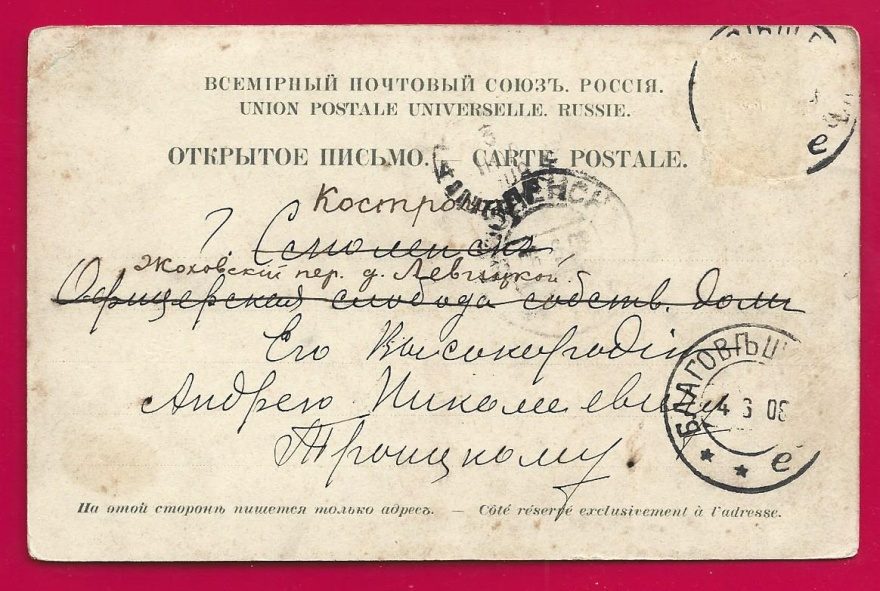 ВСЕМІРНЫЙ ПОЧТОВЫЙ СОЮЗЪ. РОССІЯ.
UNION POSTALE UNIVERSELLE. RUSSIE.
ОТКРЫТОЕ ПИСЬМО. — CARTE POSTALE.
Кострома
Г. Смоленскъ
Жоховскій пер. д. Левицкой.
Офицерская слобода собств. домъ
Его Высокородію
Андрею Николаевичу
Троицкому
БЛАГОВѢЩ
4 6 08
е
е
На этой сторонѣ пишется только адресъ. — Côté réservé exclusivement à l'adresse.